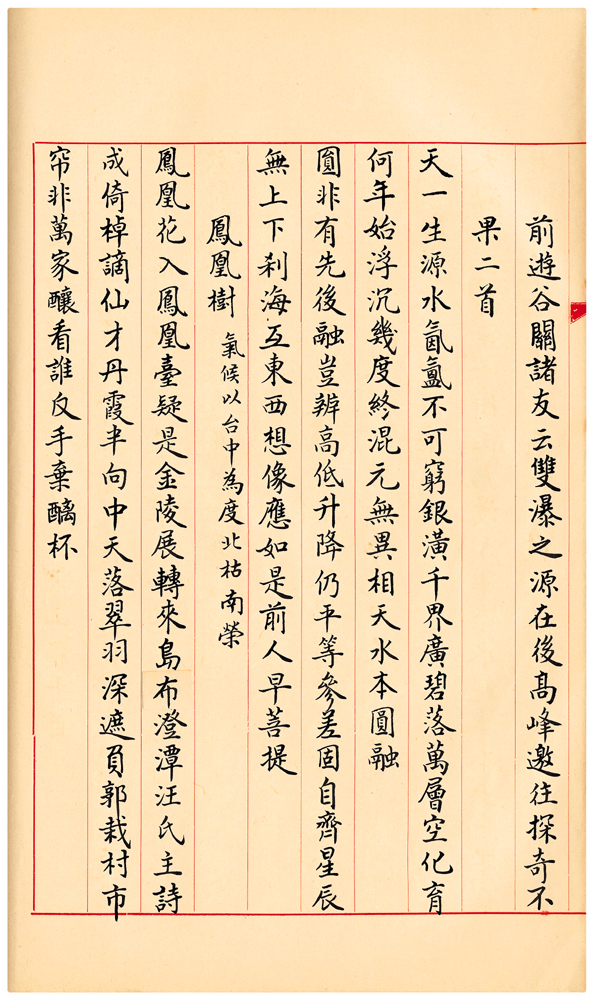 前遊谷關諸友云雙瀑之源在後高峰邀往探奇不
果二首
天一生源水氤氳不可窮銀潢千界廣碧落萬層空化育
何年始浮沉幾度終混元無異相天水本圓融
圓非有先後融豈辨高低升降仍平等參差固自齊星辰
無上下剎海互東西想像應如是前人早菩提
鳳凰樹 氣候以台中為度北枯南榮
鳳凰花入鳳凰臺疑是金陵展轉來島布澄潭汪氏主詩
成倚棹謫仙才丹霞半向中天落翠羽深遮負郭栽村市
帘非萬家釀看誰反手棄醨杯